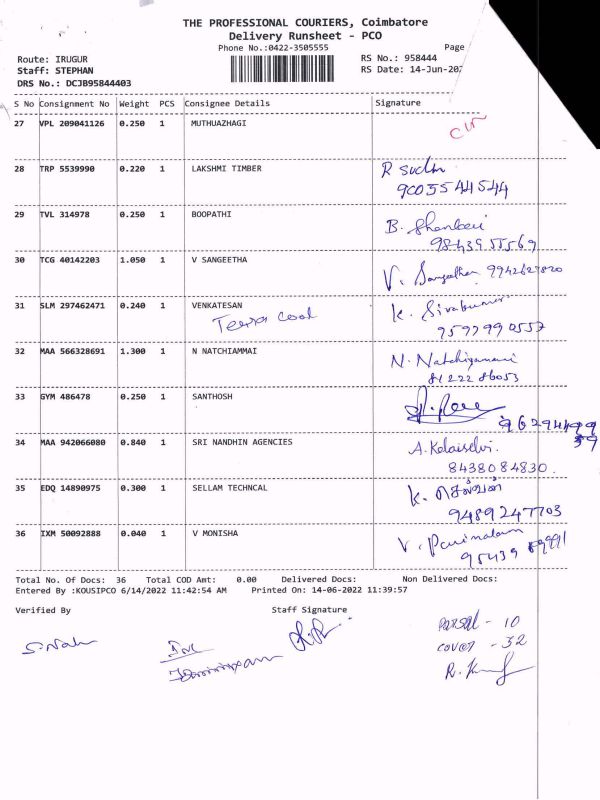 THE PROFESSIONAL COURIERS, Coimbatore
Delivery Runsheet - PCO
Phone No.:0422-3505555 Page
Route: IRUGUR RS No.: 958444
Staff: STEPHAN RS Date: 14-Jun-202
DRS No.: DCJB95844403
S No Consignment No Weight PCS Consignee Details Signature
27 VPL 209041126 0.250 1 MUTHUAZHAGI
28 TRP 5539990 0.220 1 LAKSHMI TIMBER R Sudha
9003544544
29 TVL 314978 0.250 1 BOOPATHI B.
9843955569
30 TCG 40142203 1.050 1 V SANGEETHA V. Sangeetha
31 SLM 297462471 0.240 1 VENKATESAN K. Sivakumar
Terra Cool
32 MAA 566328691 1.300 1 N NATCHIAMMAI N. Natchiyammai
81222 86053
33 GYM 486478 0.250 1 SANTHOSH
34 MAA 942066080 0.840 1 SRI NANDHIN AGENCIES A. Kalaiselvi
8438084830.
35 EDQ 14890975 0.300 1 SELLAM TECHNCAL K. செல்வன்
9489247703
36 IXM 50092888 0.040 1 V MONISHA V. Parimalam
Total No. Of Docs: 36 Total COD Amt: 0.00 Delivered Docs: Non Delivered Docs:
Entered By :KOUSIPCO 6/14/2022 11:42:54 AM Printed On: 14-06-2022 11:39:57
Verified By Staff Signature
Parsal - 10
cover - 32